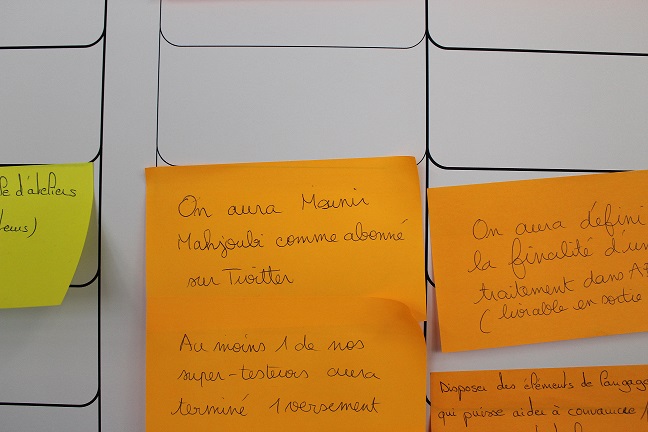 d'ateliers
On aura Mounir
Mahjoubi comme abonné
sur Twitter
Au moins 1 de nos
super-testeurs aura
terminé 1 versement
On aura défini
la finalité d'un
traitement dans
(livrable en sortie
Disposer des éléments de langage
qui puisse aider à convaincre